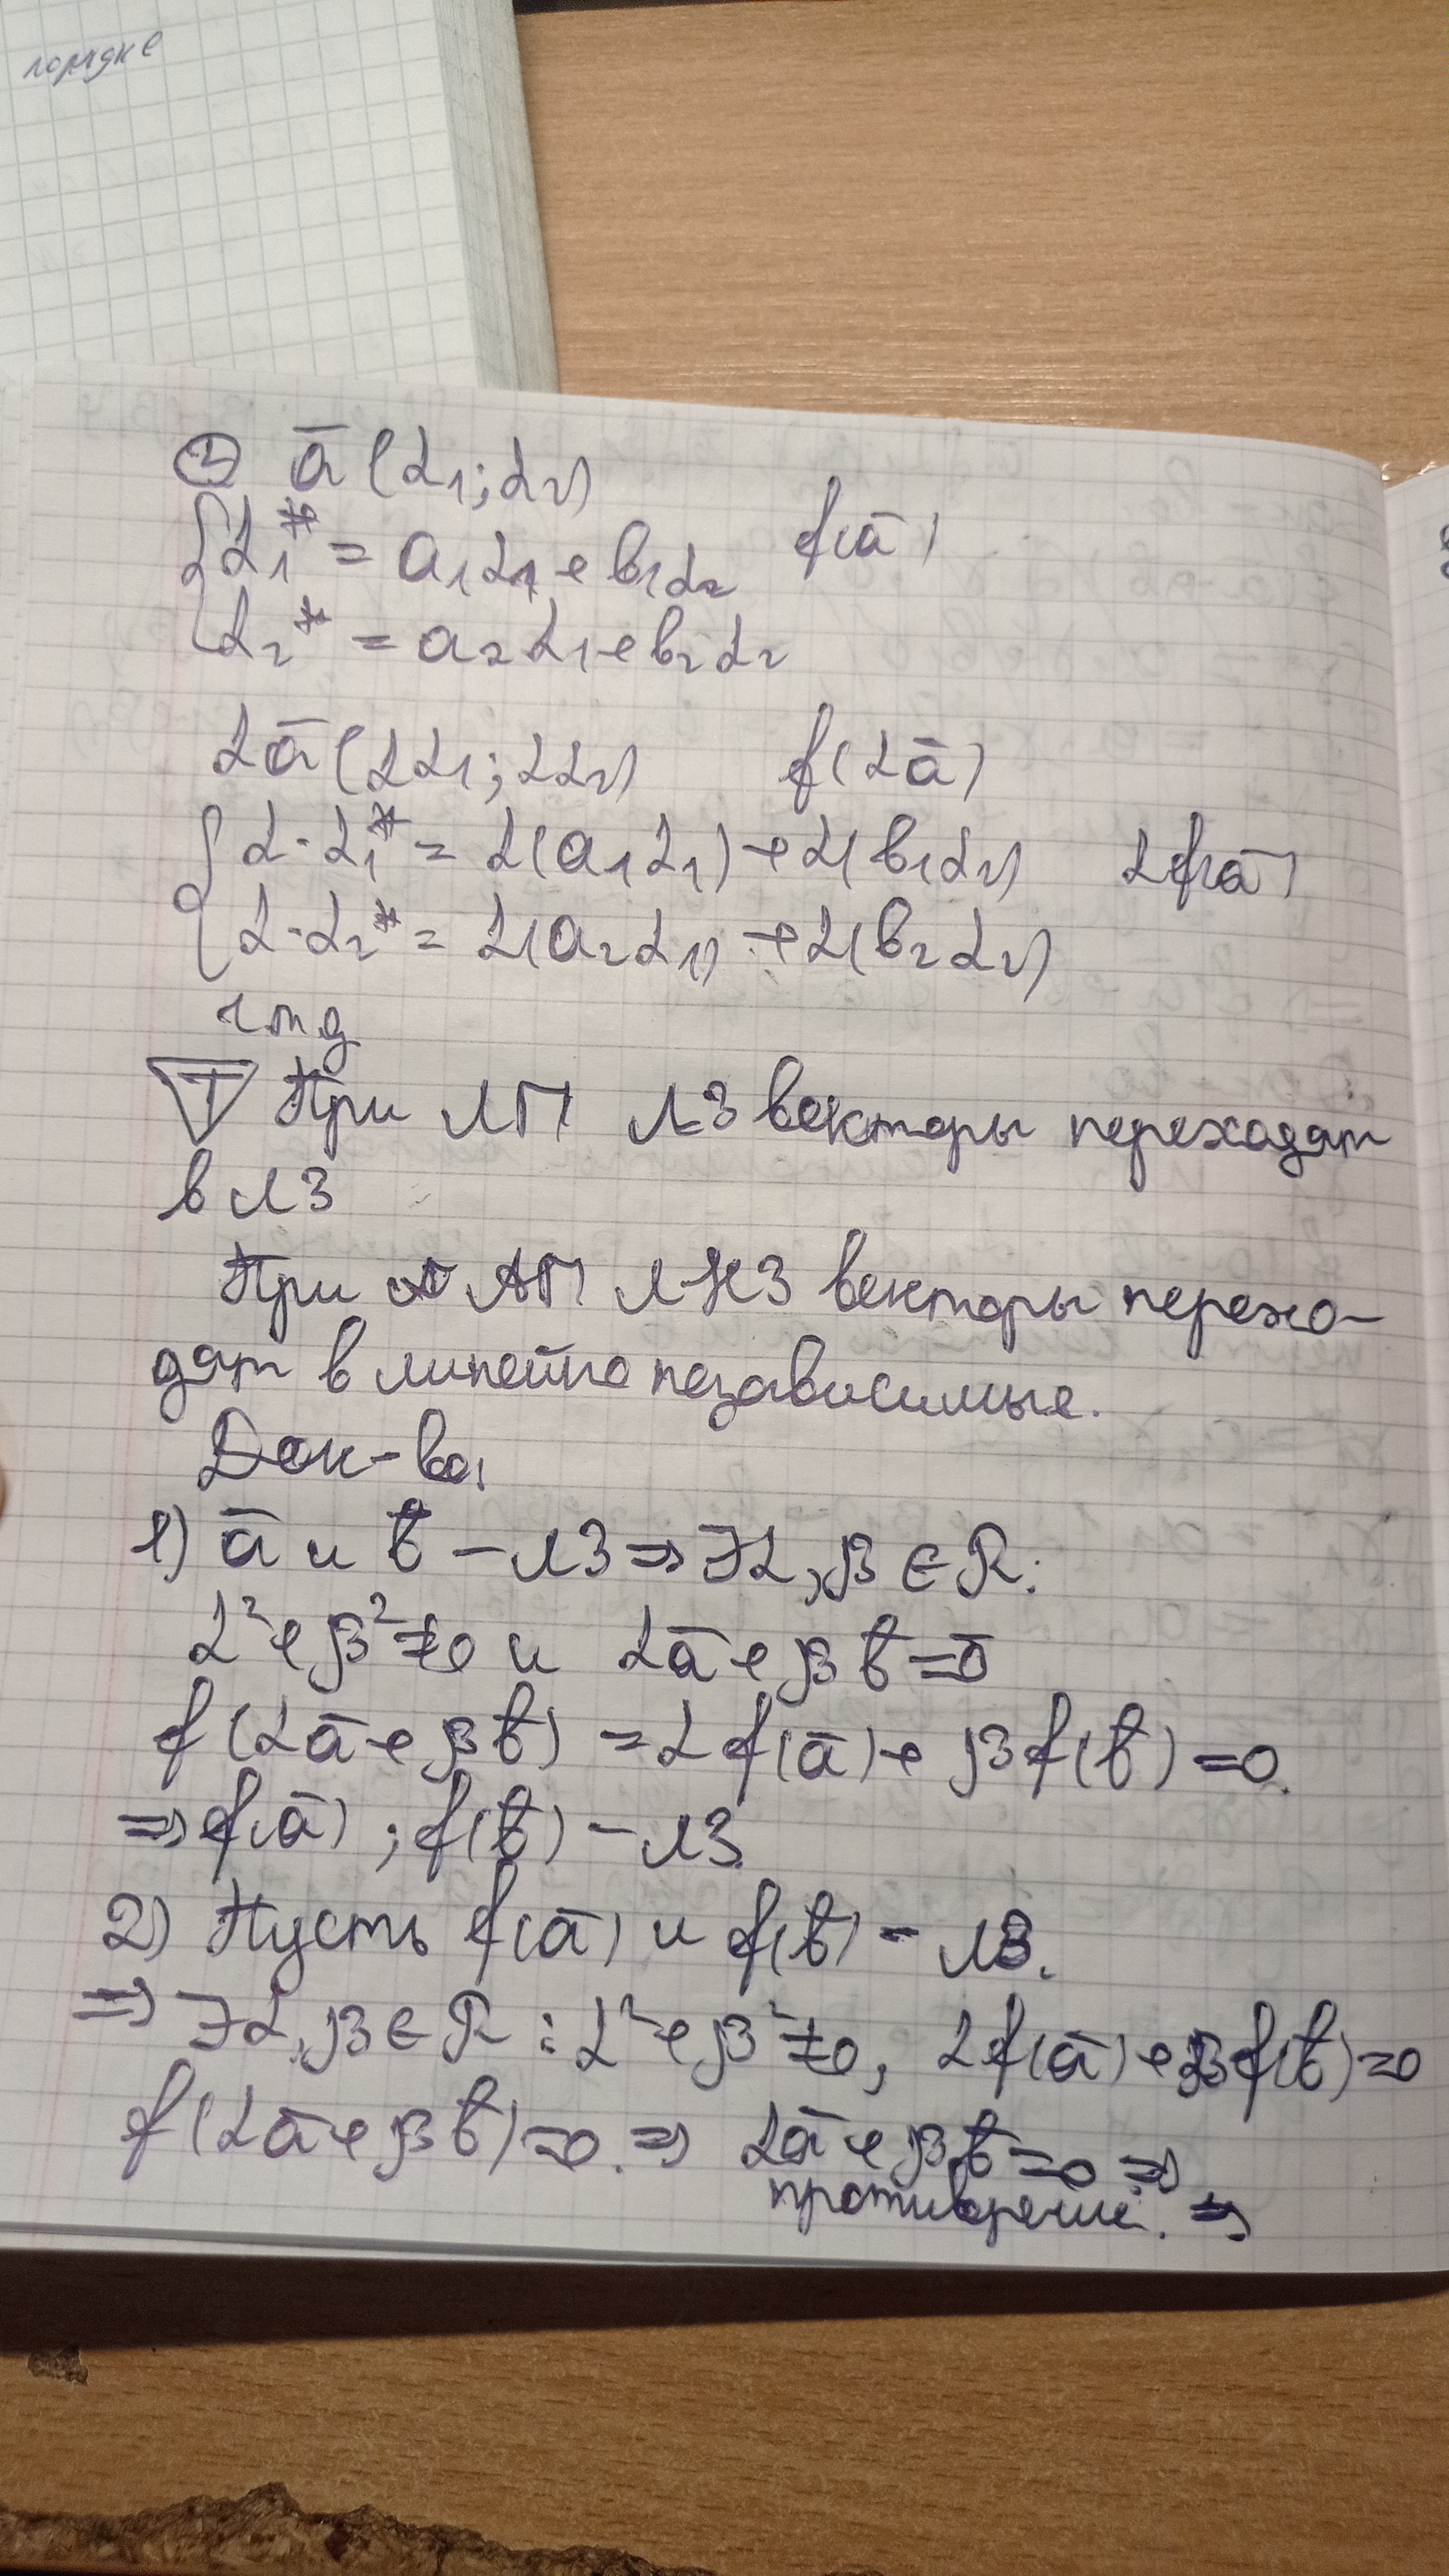 порядке
② ā (α₁; α₂)
{ α₁* = a₁α₁ + b₁α₂ f(ā)
α₂* = a₂α₁ + b₂α₂
αā (αα₁; αα₂) f(αā)
{ α·α₁* = α(a₁α₁) + α(b₁α₂) αf(ā)
α·α₂* = α(a₂α₁) + α(b₂α₂)
чтд
Т При ЛП ЛЗ векторы переходят
в ЛЗ
При АП ЛНЗ векторы перехо-
дят в линейно независимые.
Док-во:
1) ā и b̄ - ЛЗ ⇒ ∃α, β ∈ R:
α² + β² ≠ 0 и αā + βb̄ = 0̄
f(αā + βb̄) = αf(ā) + βf(b̄) = 0.
⇒ f(ā); f(b̄) - ЛЗ.
2) Пусть f(ā) и f(b̄) - ЛЗ.
⇒ ∃α, β ∈ R: α² + β² ≠ 0, αf(ā) + βf(b̄) = 0
f(αā + βb̄) = 0. ⇒ αā + βb̄ = 0 ⇒
противоречие. ⇒